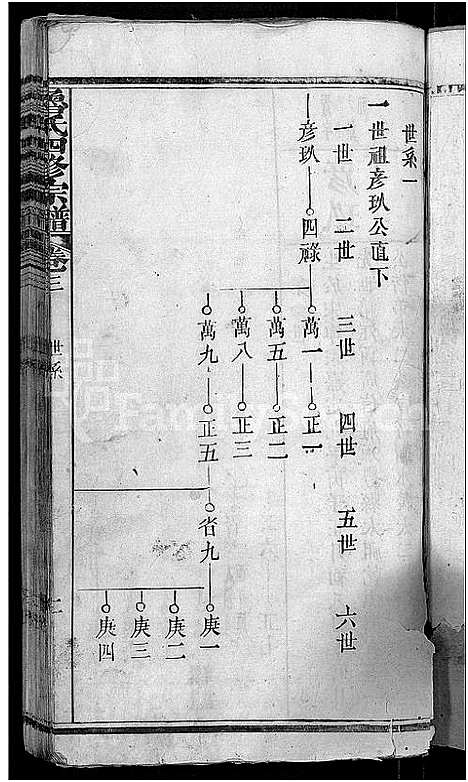 世系一
一世祖彥玖公直下
一世 二世 三世 四世 五世 六世
彥玖 四祿 萬一 正一
萬五 正二
萬八 正三
萬九 正五 省九 庚一
庚二
庚三
庚四
氏四修宗譜 卷三 世系